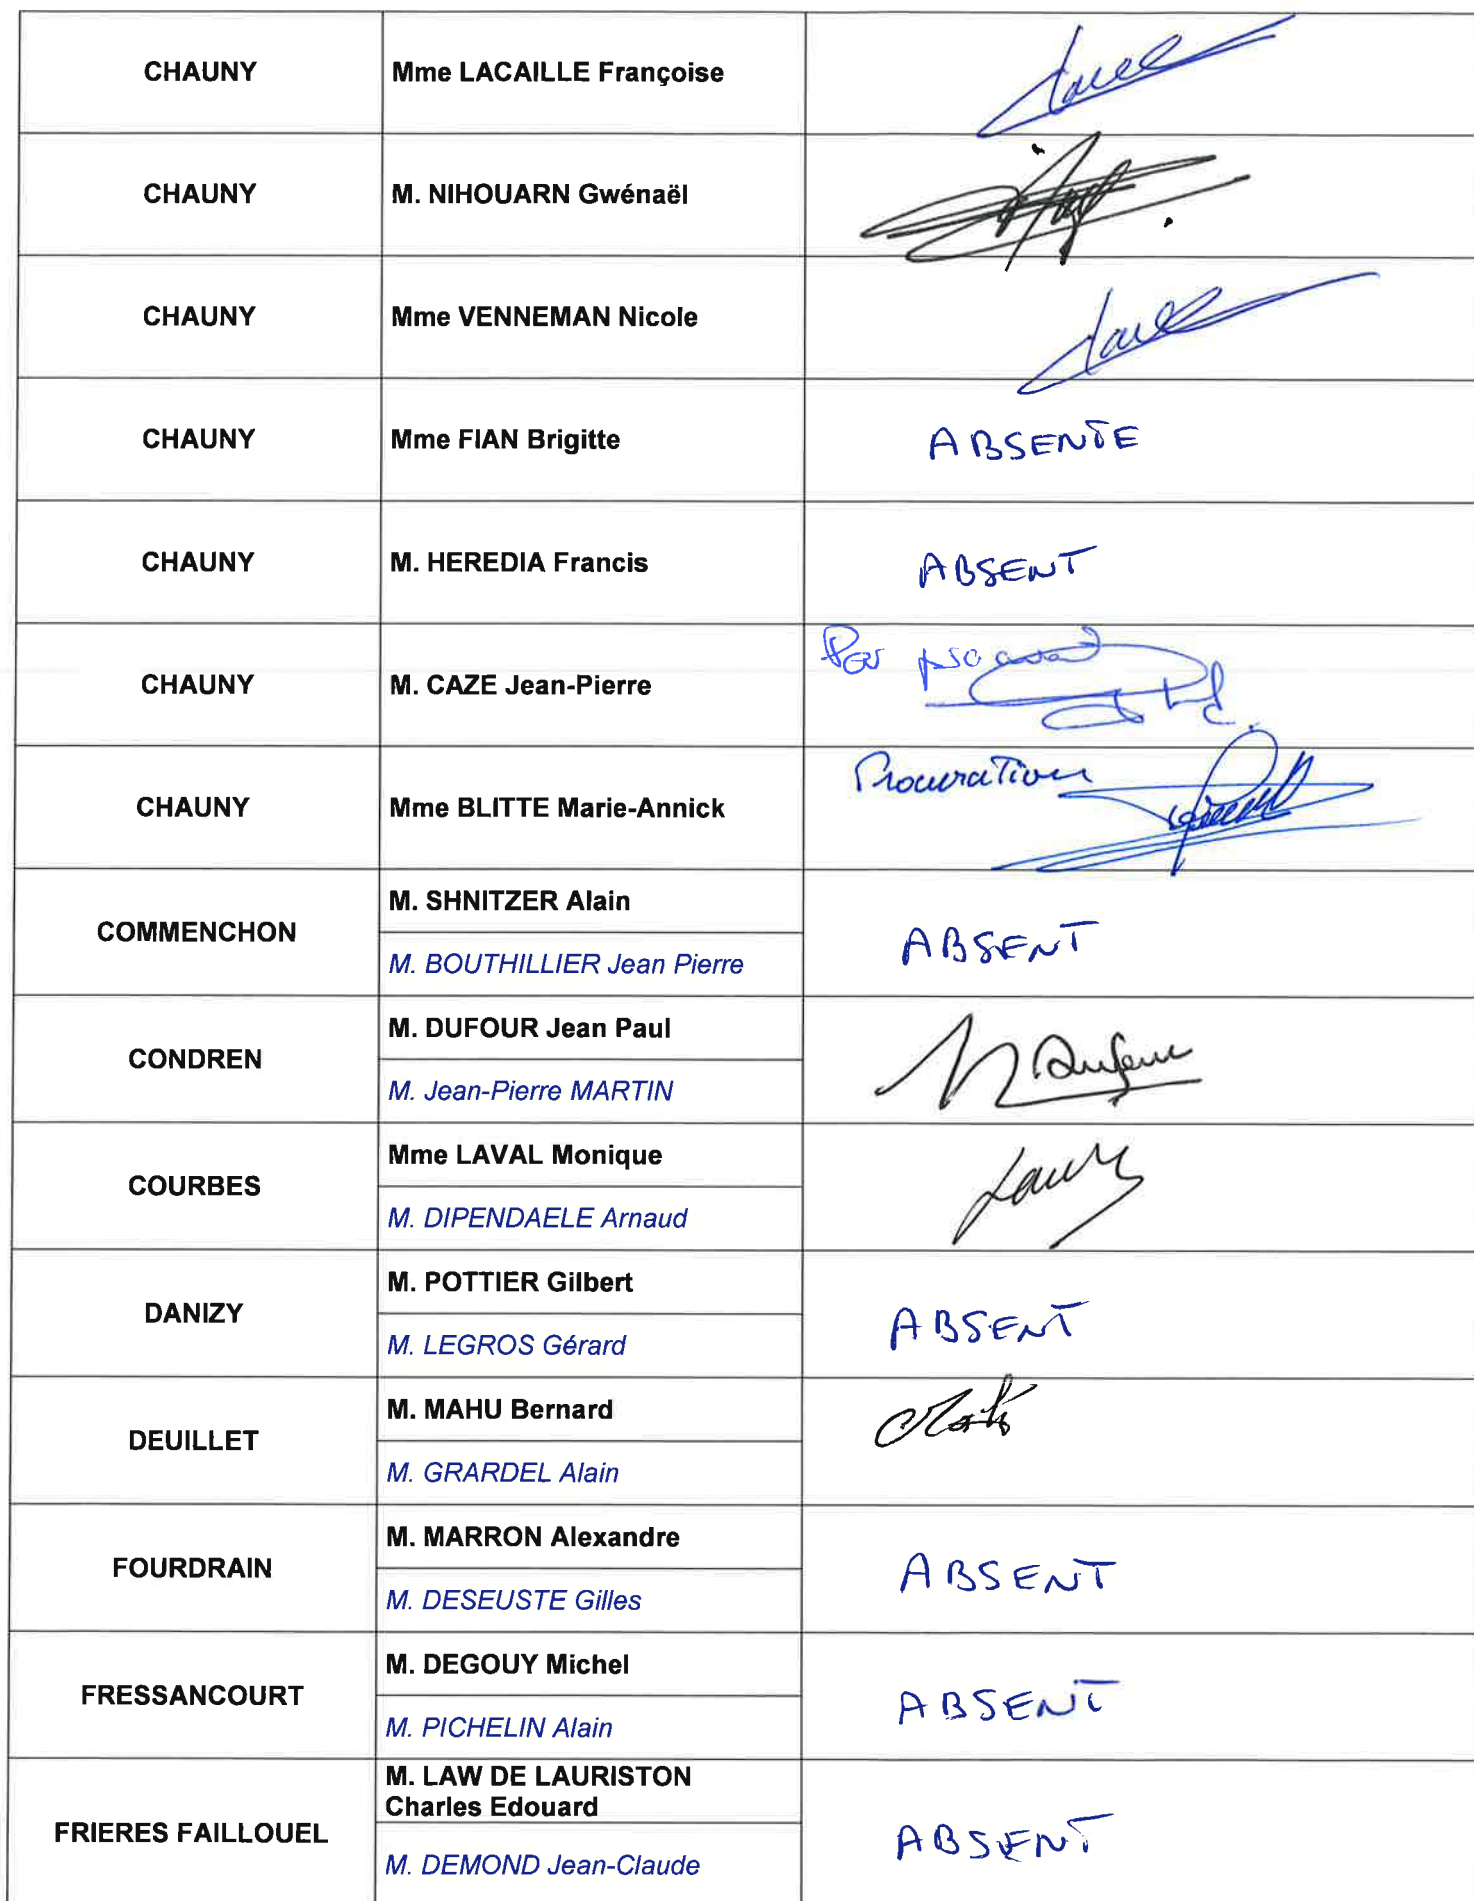 CHAUNY
Mme LACAILLE Françoise
CHAUNY
M. NIHOUARN Gwénaël
CHAUNY
Mme VENNEMAN Nicole
CHAUNY
Mme FIAN Brigitte
ABSENTE
CHAUNY
M. HEREDIA Francis
ABSENT
CHAUNY
M. CAZE Jean-Pierre
CHAUNY
Mme BLITTE Marie-Annick
Procuration
COMMENCHON
M. SHNITZER Alain
M. BOUTHILLIER Jean Pierre
ABSENT
CONDREN
M. DUFOUR Jean Paul
M. Jean-Pierre MARTIN
COURBES
Mme LAVAL Monique
M. DIPENDAELE Arnaud
DANIZY
M. POTTIER Gilbert
M. LEGROS Gérard
ABSENT
DEUILLET
M. MAHU Bernard
M. GRARDEL Alain
FOURDRAIN
M. MARRON Alexandre
M. DESEUSTE Gilles
ABSENT
FRESSANCOURT
M. DEGOUY Michel
M. PICHELIN Alain
ABSENT
FRIERES FAILLOUEL
M. LAW DE LAURISTON
Charles Edouard
M. DEMOND Jean-Claude
ABSENT